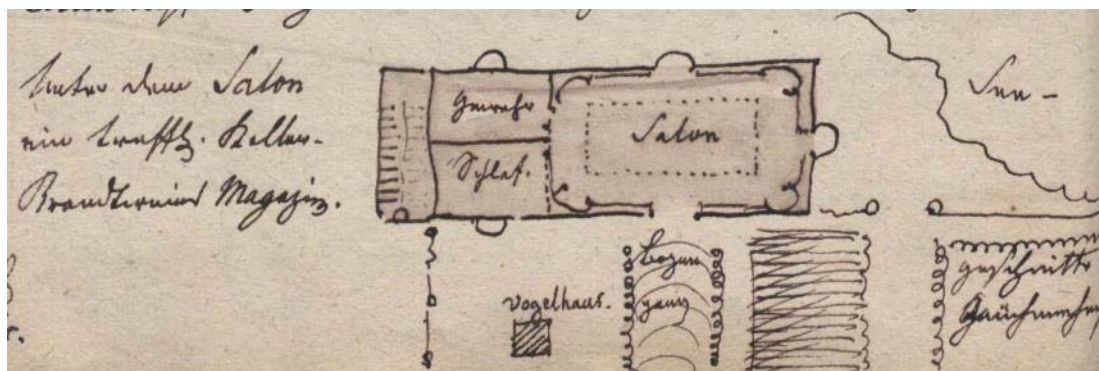 Unter dem Salon
ein treffl. Keller-
Brandtweins Magazin.
Gewehr
Schlaf.
Salon
See-
Vogelhaus.
bogen
gang
geschnitte